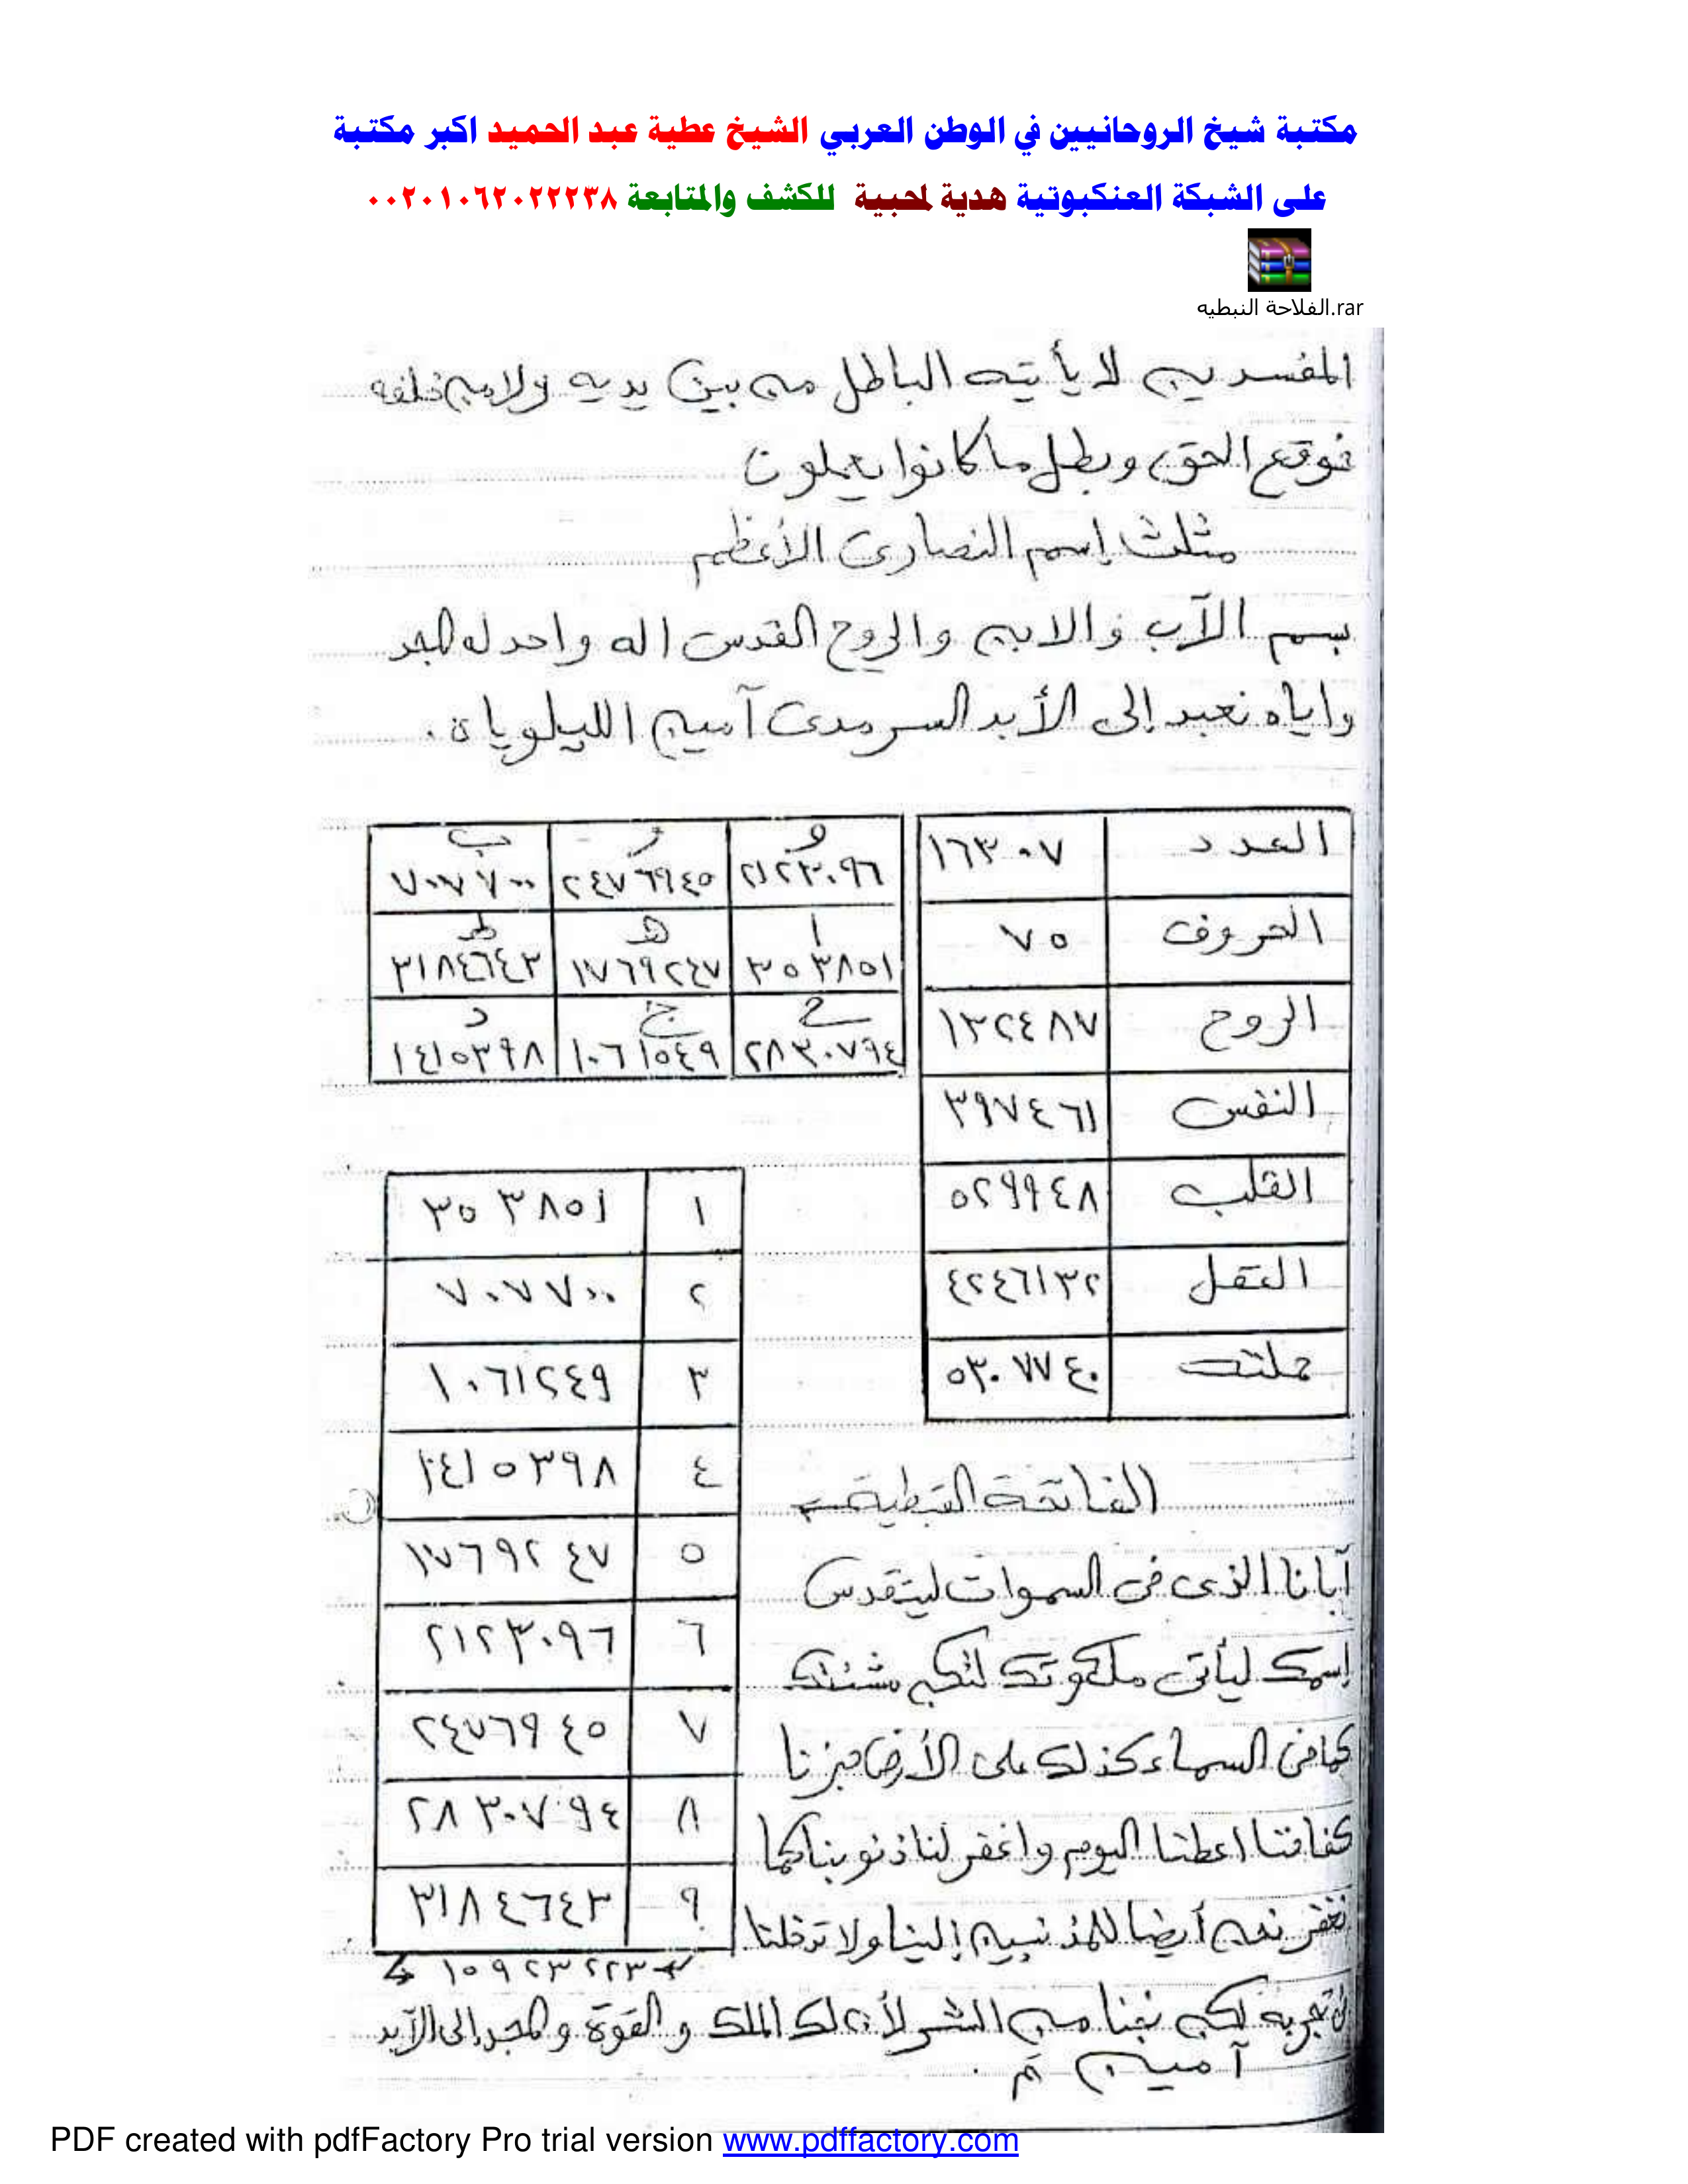 مكتبة شيخ الروحانيين في الوطن العربي الشيخ عطية عبد الحميد اكبر مكتبة
على الشبكة العنكبوتية هدية لمحبية للكشف والمتابعة ٠٠٢٠١٠٦٢٠٢٢٢٣٨
الفلاحة النبطيه.rar
المفسدين لا يأتيه الباطل من بين يديه ولا من خلفه
فوقع الحق وبطل ما كانوا يعملون
مثلث إسم النصارى الأعظم
بسم الآب والابن والروح القدس اله واحد له المجد
واياه نعبد إلى الأبد السرمدى آمين الليلوياه.
العدد ١٦٣٠٧
الحروف ٧٥
الروح ١٣٢٤٨٧
النفس ٣٩٧٤٦١
القلب ٥٢٩٩٤٨
العقل ٤٢٤٦١٣٢
جملته ٥٣٠٧٧٤٠
و ز ب
٢١٢٣٠٩٦ ٢٤٧٦٩٤٥ ٧٠٧٧٠٠
ا هـ ط
٣٥٣٨٥١ ١٧٦٩٢٤٧ ٣١٨٤٦٤٣
ح ج د
٢٨٣٠٧٩٤ ١٠٦١٥٤٩ ١٤١٥٣٩٨
١ ٣٥٣٨٥١
٢ ٧٠٧٧٠٠
٣ ١٠٦١٢٤٩
٤ ١٤١٥٣٩٨
٥ ١٧٦٩٢٤٧
٦ ٢١٢٣٠٩٦
٧ ٢٤٧٦٩٤٥
٨ ٢٨٣٠٧٩٤
٩ ٣١٨٤٦٤٣
١٥٩٢٣٢٢٣
الفاتحة القبطية
آبانا الذى فى السموات ليتقدس
إسمك ليأتى ملكوتك لتكن مشئتك
كما فى السماء كذلك على الأرض خبزنا
كفافنا اعطنا اليوم واغفر لنا ذنوبنا كما
نغفر نحن أيضا للمذنبين إلينا ولا تدخلنا
تجربه لكن نجنا من الشر لأن لك الملك و القوة و المجد إلى الآبد
آمين م.
PDF created with pdfFactory Pro trial version www.pdffactory.com